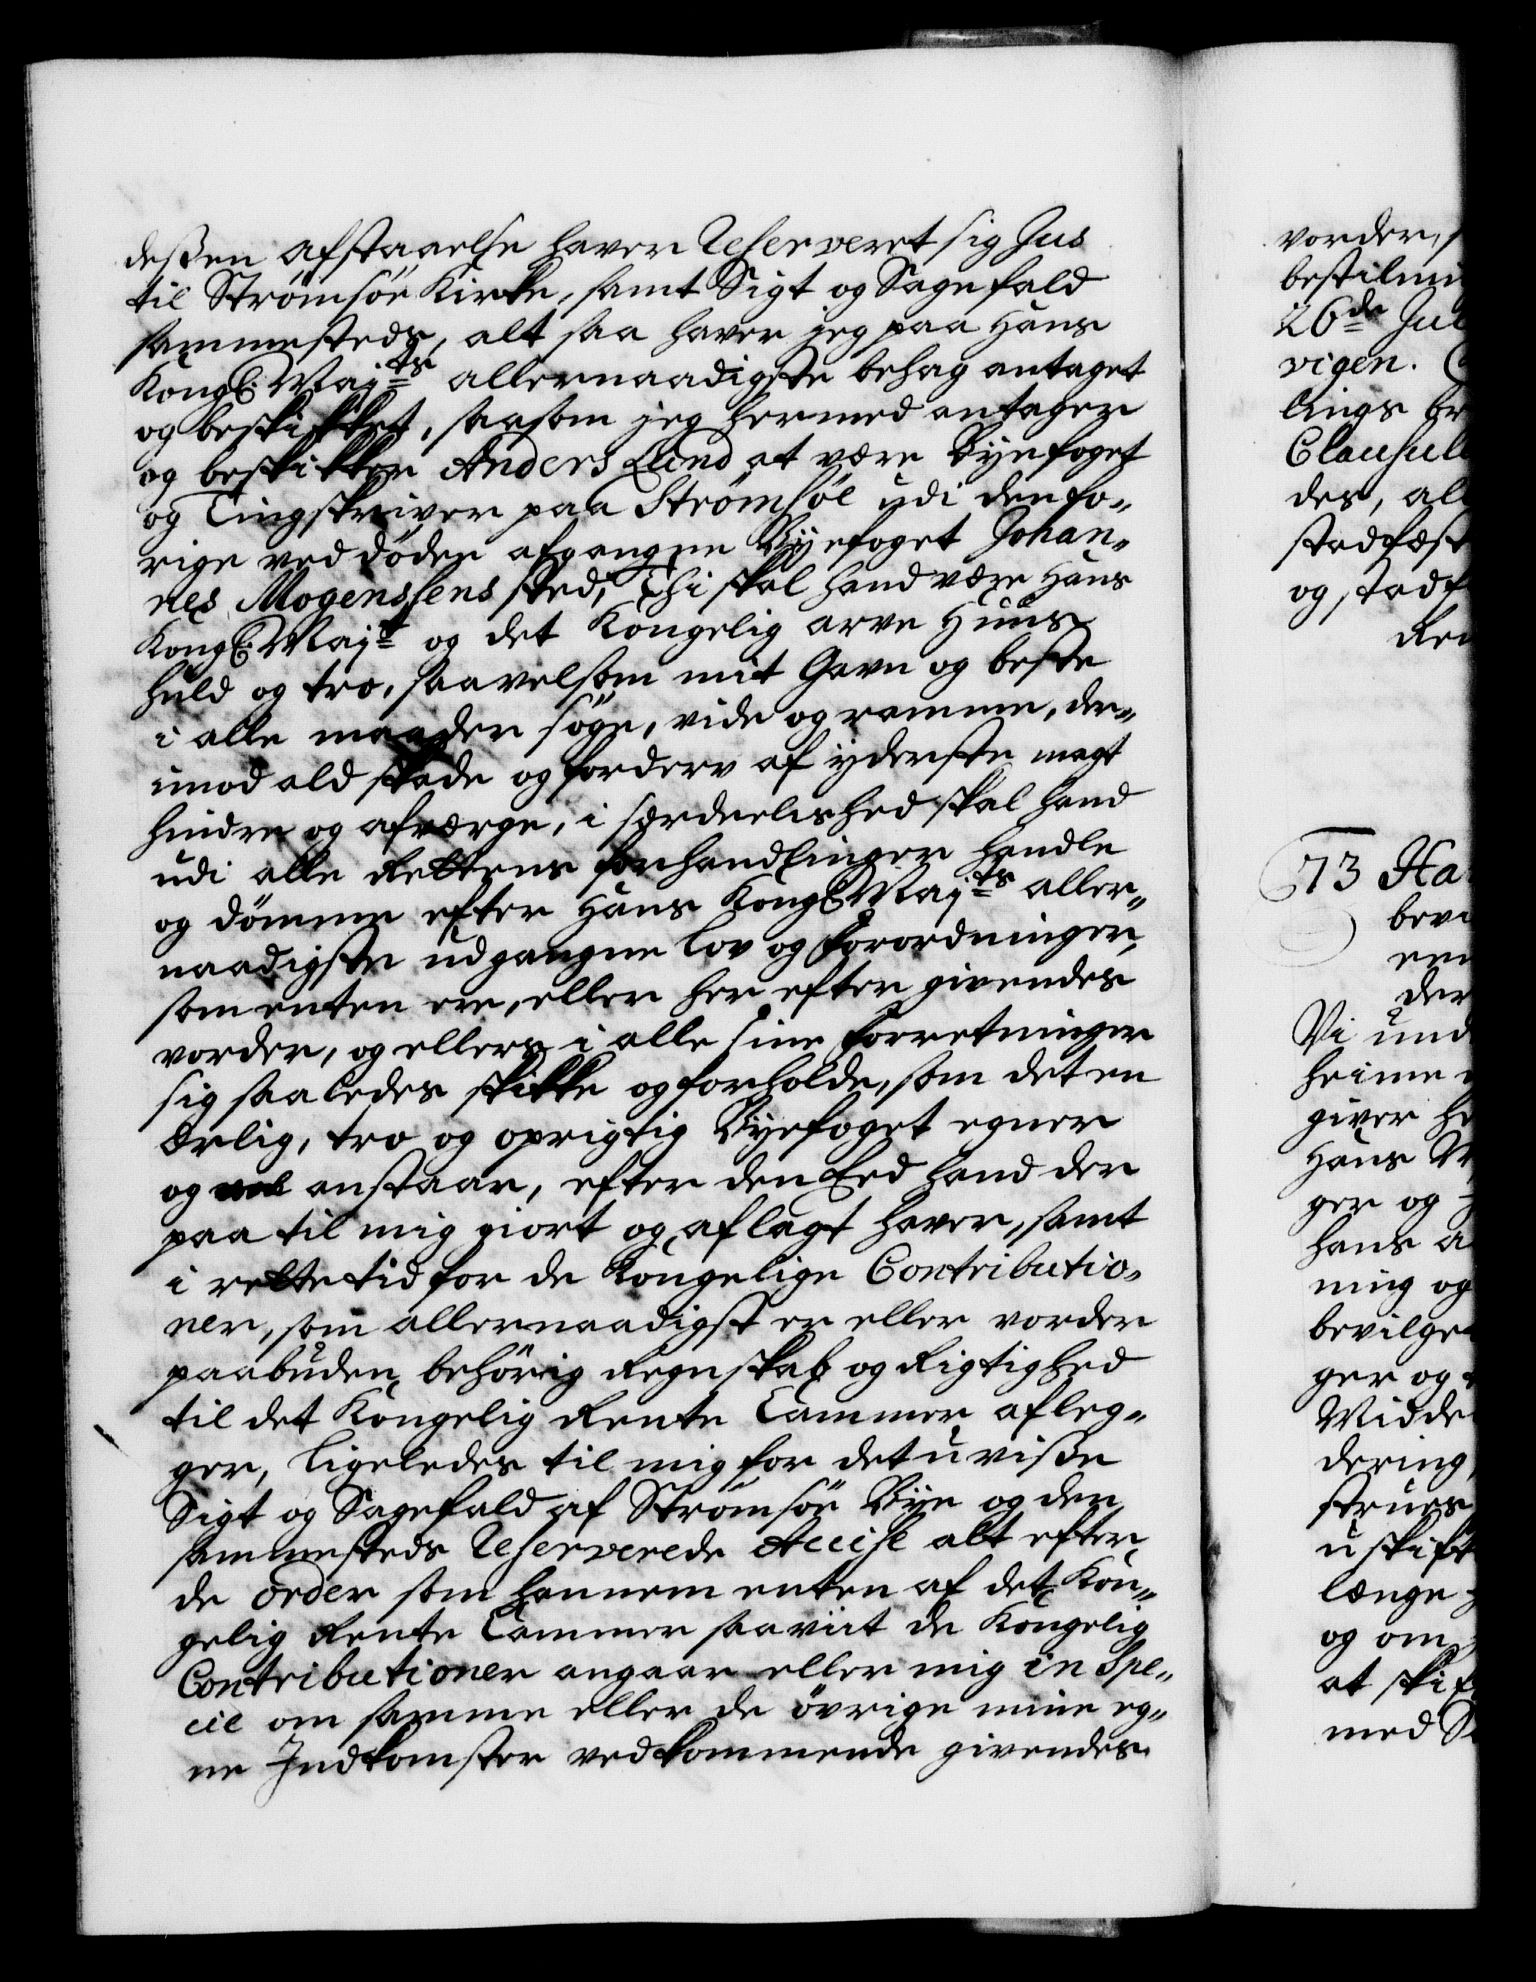 deßen afstaaelse haver Reserveret sig Jus
til Strømsöe Kirke, samt Sigt og Sagefald
sammesteds, alt saa haver jeg paa Hans
Kongl. Maj:ts allernaadigste behag antaget
og beskikket, saasom jeg hermed antager
og beskikker Anders Lund at være Byefoget
og Tingskriver paa Strömsöe udi den fo„
rige ved döden afgangne Byefoget Johan„
nes Mogenssens sted, Thi skal hand være Hans
Kongl: Maj:t og det Kongelig arve Huus
huld og tro, saavelsom mit Gavn og beste
i alle maader söge, vide og ramme, der„
imod ald skade og forderv af yderste magt
hindre og afværge, i særdeelished skal hand
udi alle Rettens forhandlinger handle
og dömme efter Hans Kongl Maj:ts aller„
naadigste udgangne Lov og Forordninger,
som enten ere, eller her efter givendes
vorder, og ellers i alle sine Forretninger
sig saaledes skikke og forholde, som det en
Ærlig, tro og oprigtig Byefoget egner
og vel anstaar, efter den Eed hand der
paa til mig giort og aflagt haver, samt
i rette tid for de Kongelige Contributio„
ner, som allernaadigst er eller vorder
paabuden behörig Regnskab og Rigtighed
til det Kongelig Rente Cammer afleg„
ger, ligeledes til mig for det uviße
Sigt og Sagefald af Strömsöe Bye og den
sammesteds Reserverede Accise alt efter
de Order som hannem enten af det Kon„
gelig Rente Cammer saaviit de Kongelig
Contributioner angaar eller mig in Spe„
cie om samme eller de övrige mine eg„
ne Indkomster vedkommende givendes
vorder,
26de Jul
vigen.
lings
Clausul
des,
stadfæst
og stadf
73 Ha
Vi und
giver
Hans
ger og
hans
ning og
bevilge
ger og
dering,
længe
og om
at
med